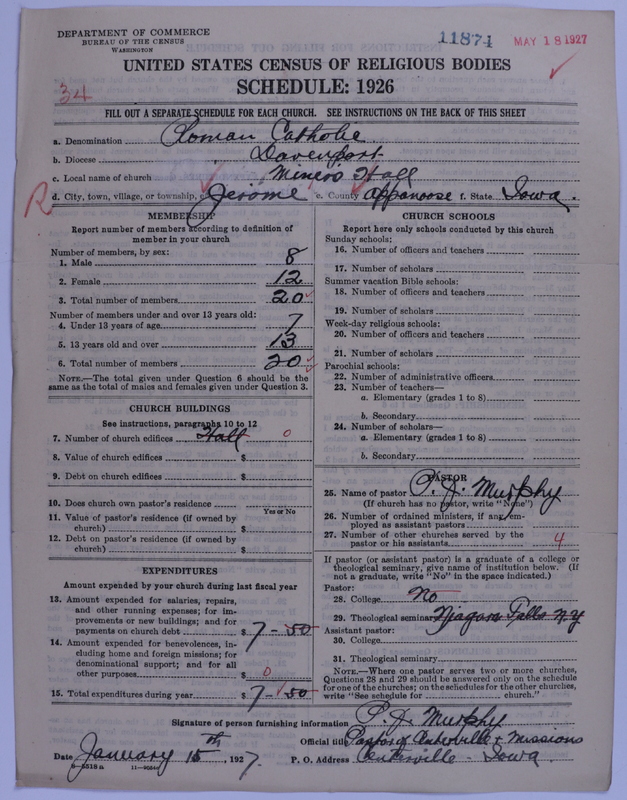 DEPARTMENT OF COMMERCE
BUREAU OF THE CENSUS
WASHINGTON
11874
MAY 18 1927
UNITED STATES CENSUS OF RELIGIOUS BODIES
SCHEDULE: 1926
34
FILL OUT A SEPARATE SCHEDULE FOR EACH CHURCH. SEE INSTRUCTIONS ON THE BACK OF THIS SHEET
a. Denomination Roman Catholic
b. Diocese Davenport
c. Local name of church Miner's Hall
R
d. City, town, village, or township, Jerome e. County Appanoose f. State Iowa.
MEMBERSHIP
Report number of members according to definition of
member in your church
Number of members, by sex:
1. Male 8
2. Female 12
3. Total number of members 20
Number of members under and over 13 years old:
4. Under 13 years of age 7
5. 13 years old and over 13
6. Total number of members 20
NOTE.—The total given under Question 6 should be the
same as the total of males and females given under Question 3.
CHURCH BUILDINGS
See instructions, paragraphs 10 to 12
7. Number of church edifices Hall 0
8. Value of church edifices $
9. Debt on church edifices $
10. Does church own pastor's residence
Yes or No
11. Value of pastor's residence (if owned by
church) $
12. Debt on pastor's residence (if owned by
church) $
EXPENDITURES
Amount expended by your church during last fiscal year
13. Amount expended for salaries, repairs,
and other running expenses; for im-
provements or new buildings; and for
payments on church debt $ 7-50
14. Amount expended for benevolences, in-
cluding home and foreign missions; for
denominational support; and for all
other purposes $ 0
15. Total expenditures during year $ 7-50
CHURCH SCHOOLS
Report here only schools conducted by this church
Sunday schools:
16. Number of officers and teachers
17. Number of scholars
Summer vacation Bible schools:
18. Number of officers and teachers
19. Number of scholars
Week-day religious schools:
20. Number of officers and teachers
21. Number of scholars
Parochial schools:
22. Number of administrative officers
23. Number of teachers—
a. Elementary (grades 1 to 8)
b. Secondary
24. Number of scholars—
a. Elementary (grades 1 to 8)
b. Secondary
PASTOR
25. Name of pastor P. J. Murphy
(If church has no pastor, write "None")
26. Number of ordained ministers, if any, em-
ployed as assistant pastors
27. Number of other churches served by the
pastor or his assistants 4
If pastor (or assistant pastor) is a graduate of a college or
theological seminary, give name of institution below. (If
not a graduate, write "No" in the space indicated.)
Pastor:
28. College No
29. Theological seminary Niagara Falls N.Y
Assistant pastor:
30. College
31. Theological seminary
NOTE.—Where one pastor serves two or more churches,
Questions 28 and 29 should be answered only on the schedule
for one of the churches; on the schedules for the other churches,
write "See schedule for church."
Signature of person furnishing information P. J. Murphy
Official title Pastor of Centerville + Missions
Date January 15th, 1927.
P. O. Address Centerville - Iowa.